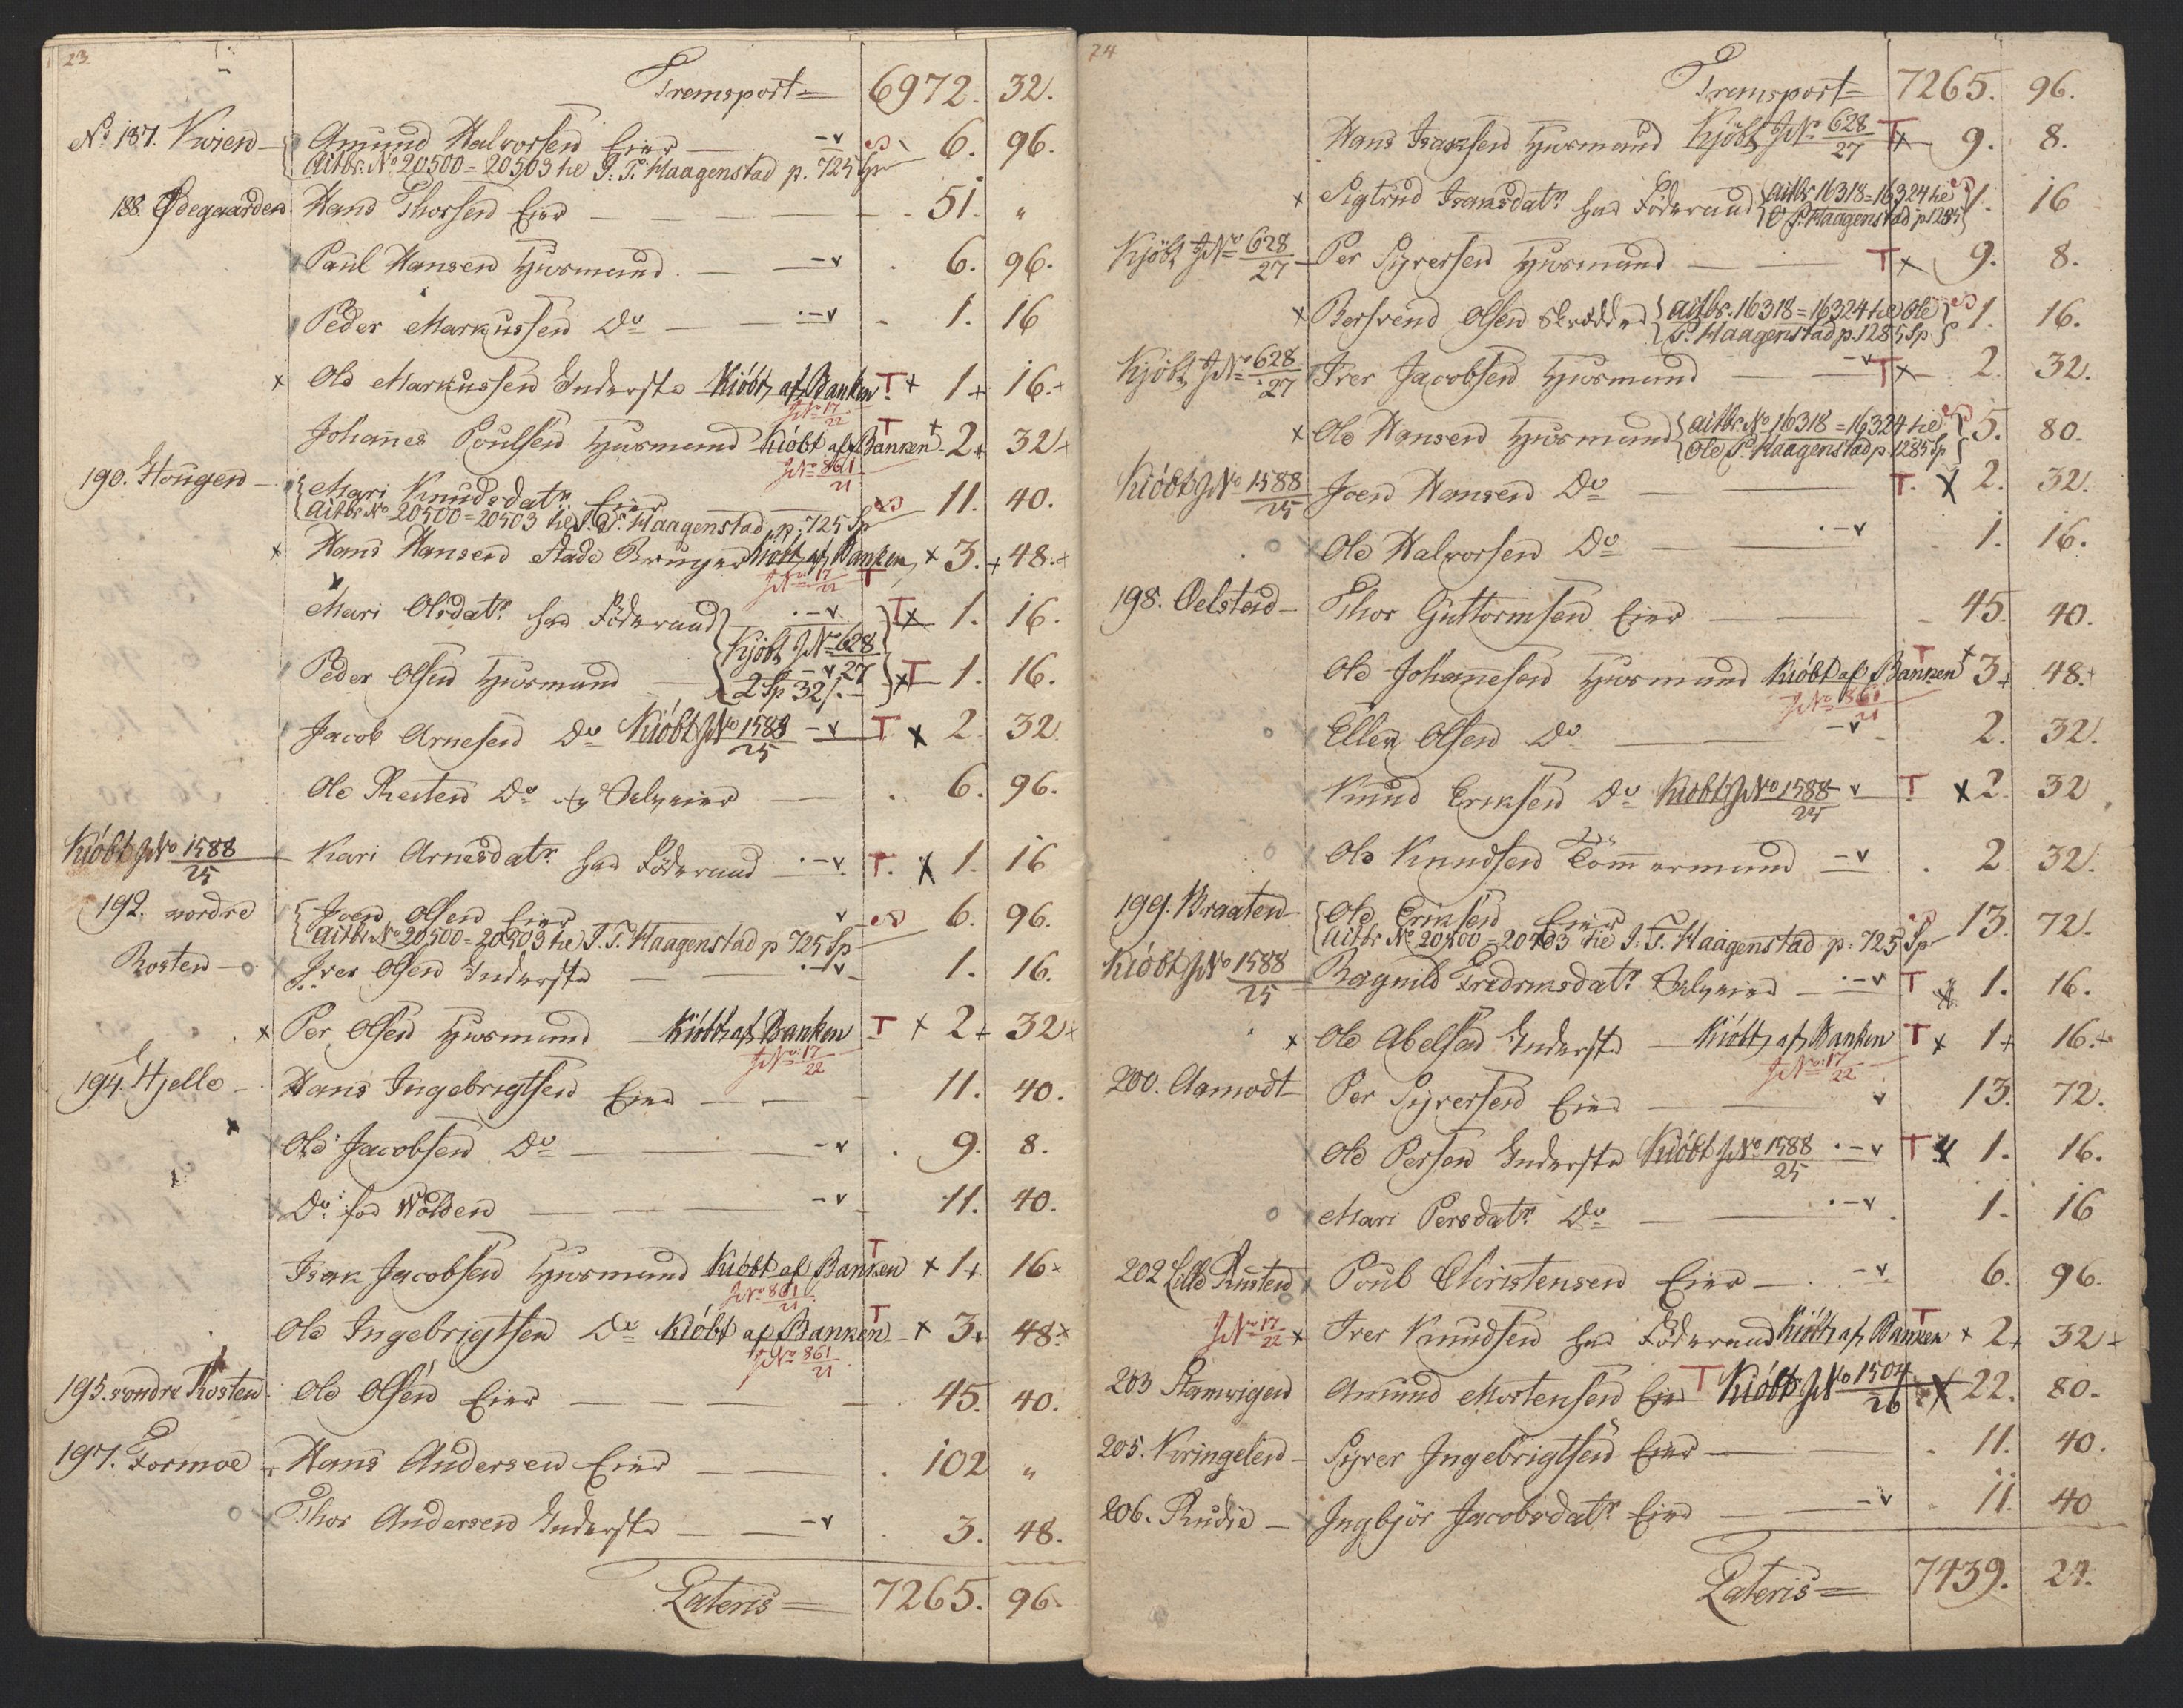 23.
Tremsport = 6972. 32.
No 187. Kvien - Amund Halvorsen Eier - v 6. 96.
Actbr: No 20500 = 20503 he J. T. Haagenstad p. 725 Sp
188. Ødegaarden Hans Thorsen Eier - 51. "
Paul Hansen Huusmand - v 6. 96.
Peder Markussen Do - v 1. 16
x Ole Markussen Inderste Kiöbt af Banken T x 1+ 16.+
JNo 17/22
Johannes Poulsen Huusmand Kiöbt af Banken T + 2+ 32+
JNo 861/21
190. Hougen - Mari Knudsdatr Eier 11. 40.
Actbr No 20500 = 20503 he J. T. Haagenstad p. 725 Sp
x Hans Hansen Stads Bruger Kiöbt af Banken T x 3.+ 48.+
JNo 17/22
Mari Olsdatr har Föderaad - v T x 1. 16.
Kjöbt JNo 628/27
Peder Olsen Huusmand 2 Sp 32 /. T x 1. 16.
Jacob Arnesen Do Kióbt JNo 1588/25 - v T x 2. 32
Ole Rusten Do og Selveier 6. 96.
Kióbt JNo 1588/25 Kari Arnesdatr har Föderaad - v T. x 1. 16
192. nordre Joen Olsen Eier v 6. 96.
Actbr No 20500 = 20503 he J. T. Haagenstad p 725 Sp
Rosten - o Iver Olsen Inderste - v 1. 16.
x Per Olsen Huusmand Kiöbt af Banken T x 2+ 32+
JNo 17/22
194. Hjelle - Hans Ingebrigtsen Eier 11. 40.
Ole Jacobsen Do - v 9. 8.
Do for Wolden - v 11. 40.
Isak Jacobsen Huusmand Kiöbt af Banken T x 1+ 16+
JNo 861/21
Ole Ingebrigtsen Do Kiöbt af Banken T x 3+ 48+
JNo 861/21
195. söndre Rosten Ole Olsen Eier 45. 40.
197. Formoe - Hans Andersen Eier 102 "
o Thor Andersen Inderste - v 3. 48.
Lateris = 7265. 96.
24
Tremsport = 7265. 96.
Hans Isaksen Huusmand Kjöbt JNo 628/27 T x 9. 8.
x Sigtrud Isaksdatr har Föderaad Actbr 16318 = 16324 he 1. 16
O P. Haagenstad p 1285
Kjöbt JNo 628/27 Per Syversen Huusmand T x 9. 8.
x Bersvend Olsen Skrædder Actbr. 16318 = 16324 he Ole 1. 16.
P. Haagenstad p. 1285 Sp
Kjöbt JNo 628/27 Iver Jacobsen Huusmand - v T x 2. 32.
x Ole Hansen Huusmand Actbr No 16318 = 16324 he 5. 80.
Ole P. Haagenstad p. 1285 Sp
Kióbt JNo 1588/25 Joen Hansen Do T. x 2. 32.
o Ole Halvorsen Do - v 1. 16.
198. Oelstad - Thor Guttormsen Eier 45. 40.
Ole Johannesen Huusmand Kiöbt af Banken T + 3+ 48+
JNo 861/21
o Ellen Olsen Do - v 2. 32.
Knud Eriksen Do Kióbt JNo 1588/25 v T x 2. 32
o Ole Knudsen Tömmermand - v 2 32.
199. Braaten - Ole Eriksen Eier 13. 72.
Actbr No 20500 = 20503 he J. T. Haagenstad p. 725 Sp
Kióbt JNo 1588/25 Ragnild Fredriksdatr Selveier - v T x 1. 16.
x Ole Abelsen Inderste - Kiöbt af Banken T x 1+ 16.+
JNo 17/22
200. Aamodt - Per Syversen Eier v 13. 72.
Ole Persen Inderste Kióbt JNo 1588/25 - v T x 1. 16.
o Mari Persdatr Do - v 1. 16
202 Lille Rusten Poul Christensen Eier - v 6. 96.
JNo 17/22 x Iver Knudsen har Föderaad Kiöbt af Banken T x 2+ 32+
203 Stamvigen Amund Mortensen Eier T Kióbt JNo 1504/26 x 22. 80.
205. Kringelen - Syver Ingebrigtsen Eier 11. 40.
206. Rudie - Ingbjör Jacobsdatr Eier - v 11. 40
Lateris = 7439. 24.